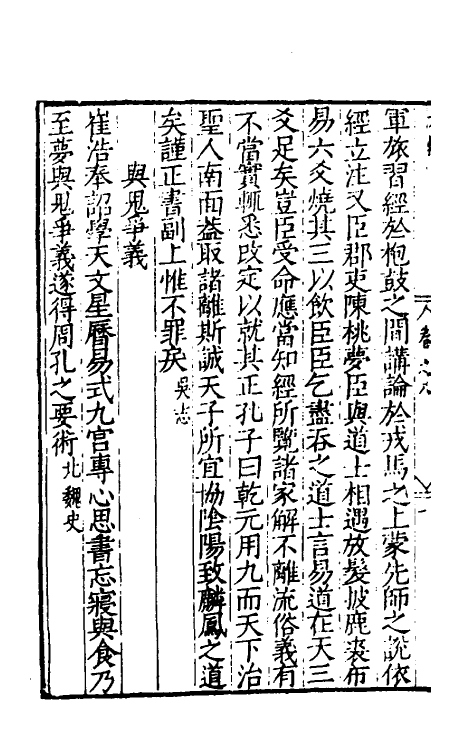 軍旅習經於枹鼓之間講論於戎馬之上蒙先師之說依
經立注又臣郡吏陳桃夢臣與道士相遇放髮披鹿裘布
易六爻燒其三以飲臣臣乞盡吞之道士言易道在天三
爻足矣豈臣受命應當知經所覽諸家解不離流俗義有
不當實輒悉改定以就其正孔子曰乾元用九而天下治
聖人南面蓋取諸離斯誠天子所宜協陰陽致麟鳳之道
矣謹正書副上惟不罪矣吳志
與鬼爭義
崔浩奉詔學天文星曆易式九宮專心思書忘寢與食乃
至夢與鬼爭義遂得周孔之要術北魏史